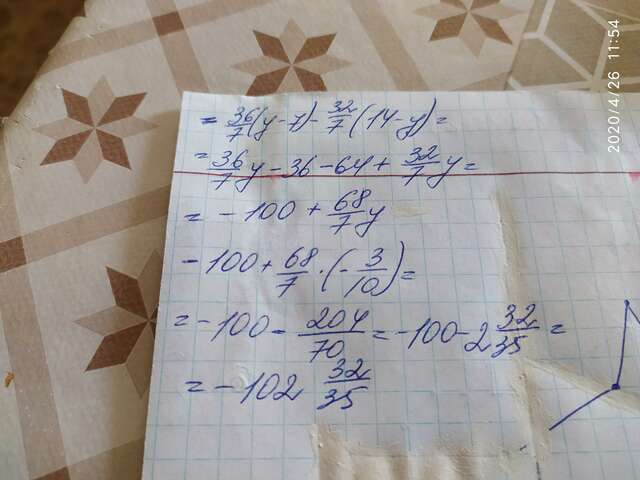 = 36/7(y-7)- 32/7(14-y)=
= 36/7y-36-64+ 32/7y=
= -100+ 68/7y
-100+ 68/7·(- 3/10)=
=-100- 204/70=-100-2 32/35=
= -102 32/35
2020/4/26 11:54